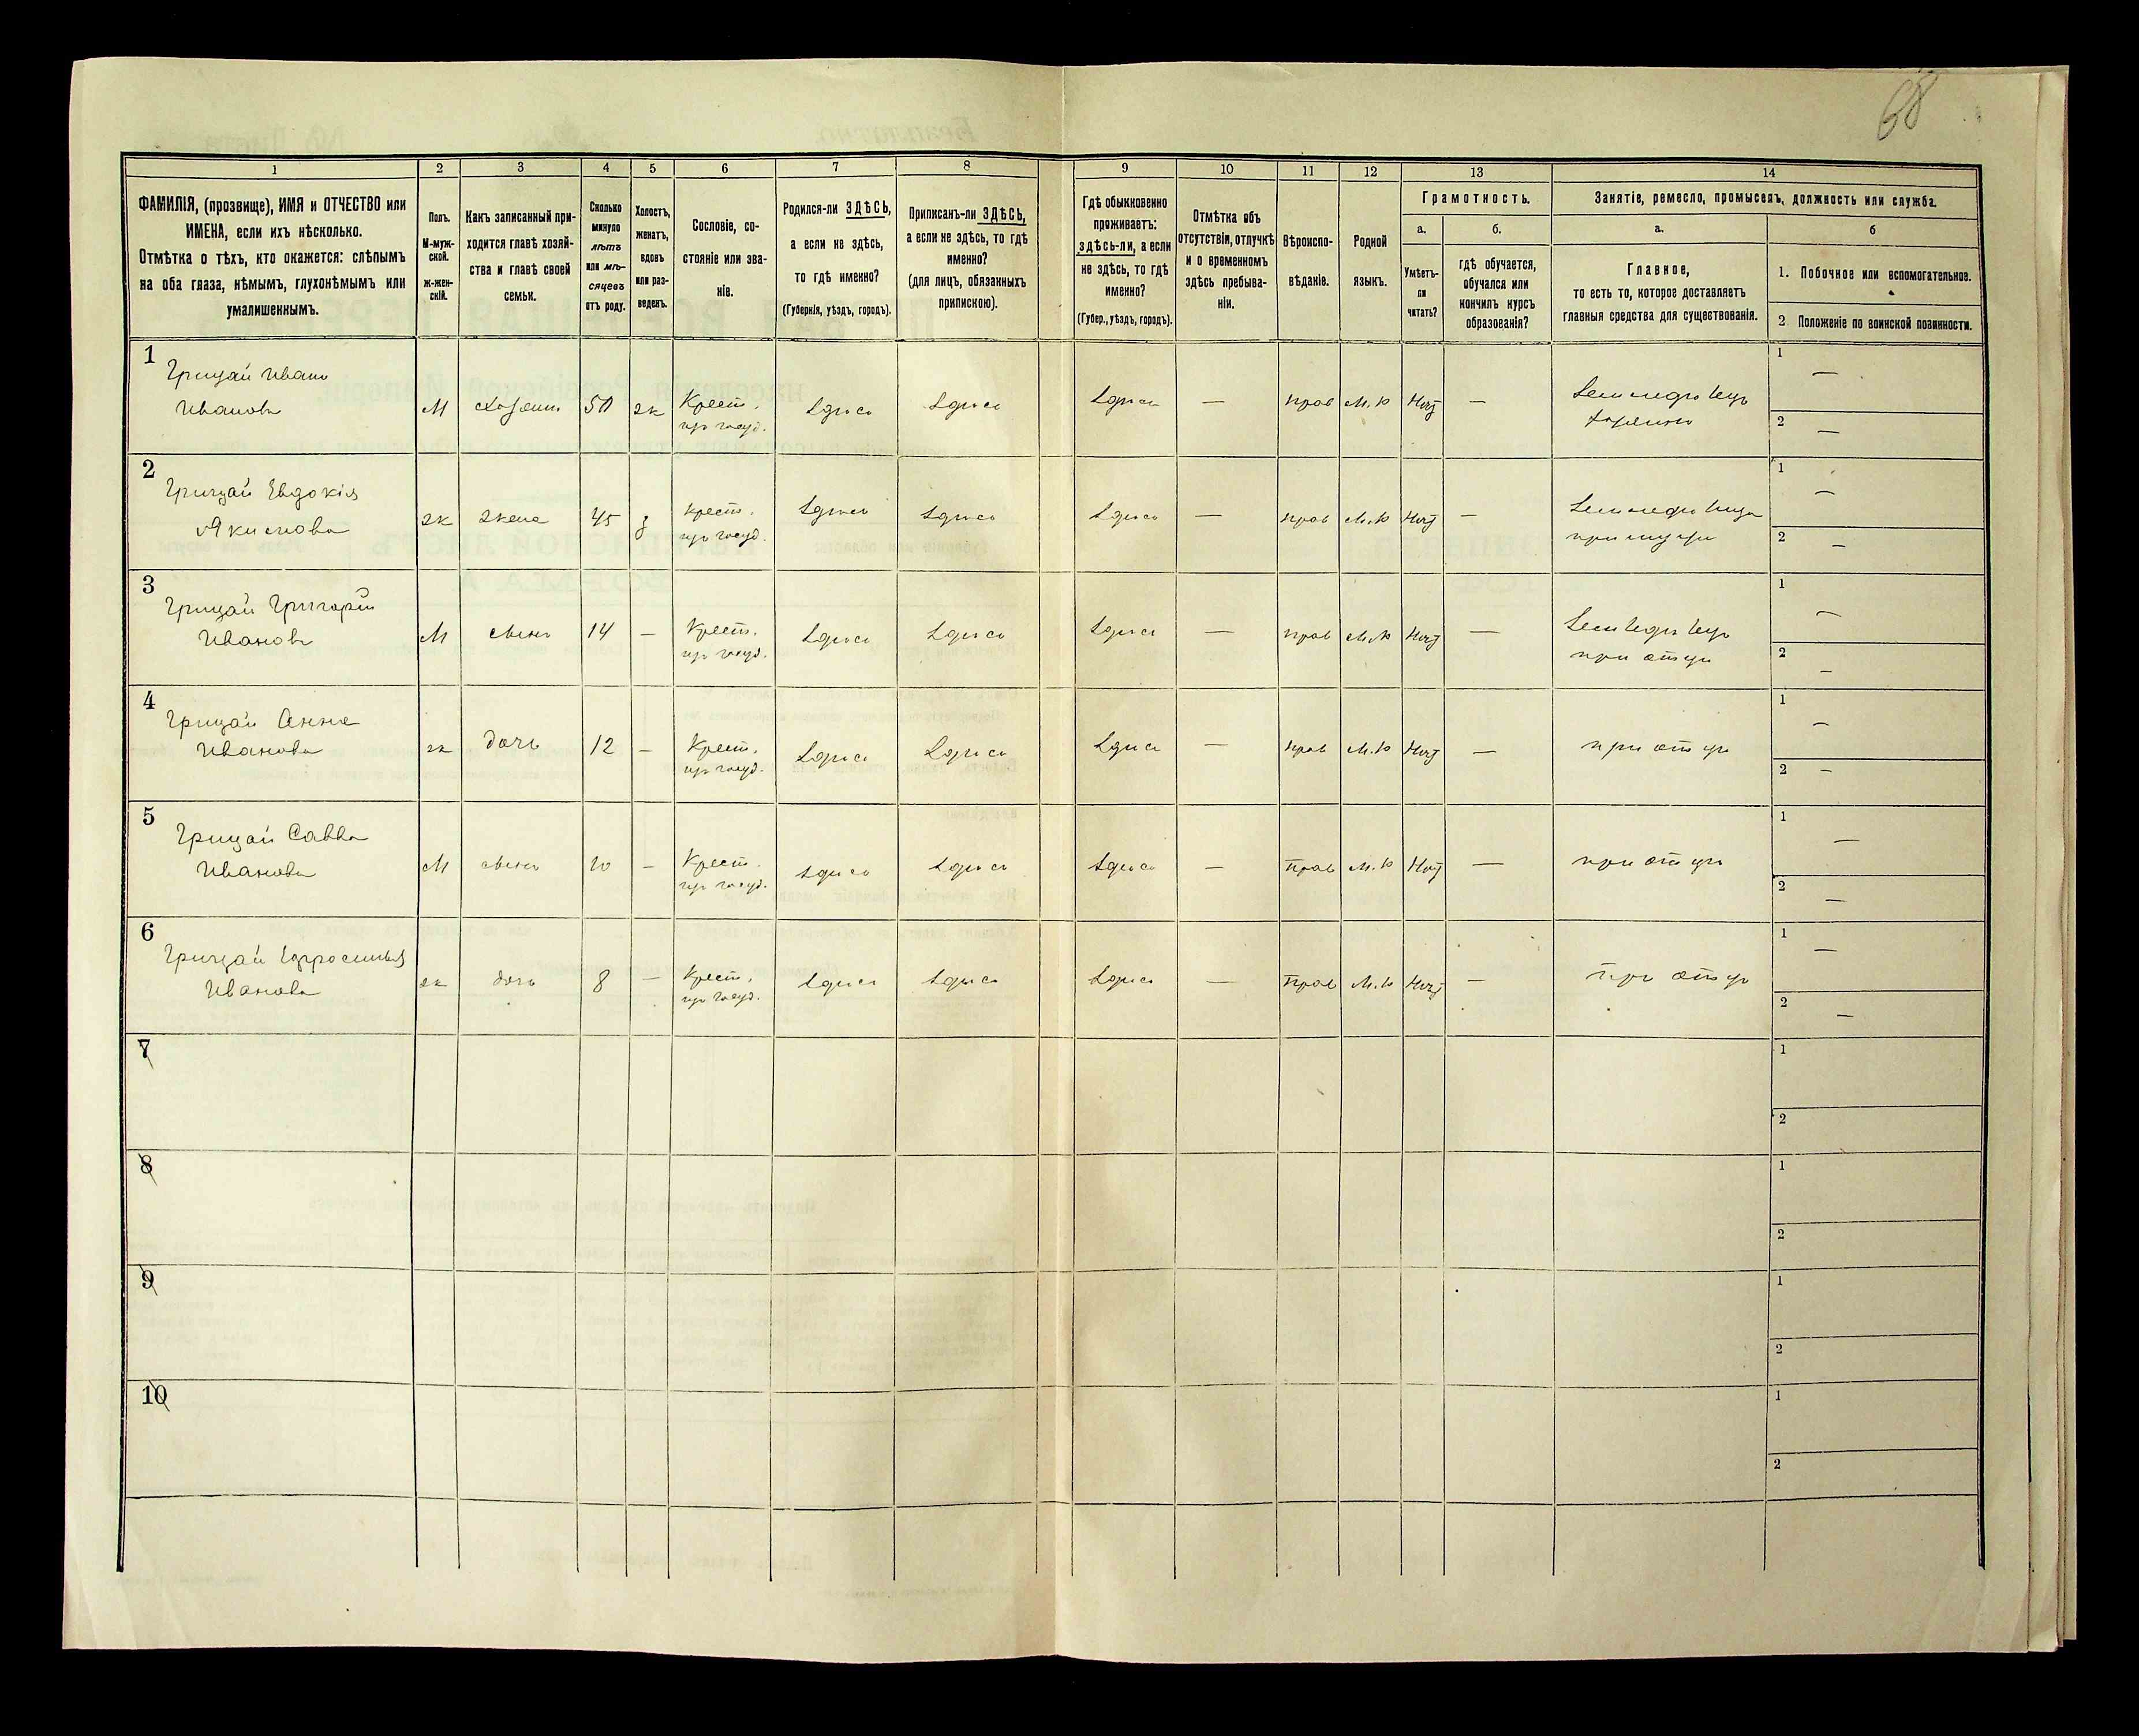 68
1 2 3 4 5 6 7 8 9 10 11 12 13 14
ФАМИЛІЯ, (прозвище), ИМЯ и ОТЧЕСТВО или
ИМЕНА, если ихъ нѣсколько.
Отмѣтка о тѣхъ, кто окажется: слѣпымъ
на оба глаза, нѣмымъ, глухонѣмымъ или
умалишеннымъ.
Полъ.
М-муж-
ской.
ж-жен-
скій.
Какъ записанный при-
ходится главѣ хозяй-
ства и главѣ своей
семьи.
Сколько
минуло
лѣтъ
или мѣ-
сяцевъ
отъ роду.
Холостъ,
женатъ,
вдовъ
или раз-
веденъ.
Сословіе, со-
стояніе или зва-
ніе.
Родился-ли ЗДѢСЬ,
а если не здѣсь,
то гдѣ именно?
(Губернія, уѣздъ, городъ).
Приписанъ-ли ЗДѢСЬ,
а если не здѣсь, то гдѣ
именно?
(для лицъ, обязанныхъ
припискою).
Гдѣ обыкновенно
проживаетъ:
здѣсь-ли, а если
не здѣсь, то гдѣ
именно?
(Губер., уѣздъ, городъ).
Отмѣтка объ
отсутствіи, отлучкѣ
и о временномъ
здѣсь пребыва-
ніи.
Вѣроиспо-
вѣданіе.
Родной
языкъ.
Грамотность.
а.
Умѣетъ-
ли
читать?
б.
гдѣ обучается,
обучался или
кончилъ курсъ
образованія?
Занятіе, ремесло, промыселъ, должность или служба.
а.
Главное,
то есть то, которое доставляетъ
главныя средства для существованія.
б
1. Побочное или вспомогательное.
2 Положеніе по воинской повинности.
1
Грицай Иванъ
Ивановъ
М хозяинъ 50 ж Крест.
изъ госуд.
здѣсь здѣсь здѣсь — прав М.р Нѣт — Земледѣлецъ
хозяинъ
1 —
2 —
2
Грицай Евдокія
Якимова
ж жена 45 з крест.
изъ госуд.
здѣсь здѣсь здѣсь — прав М.р Нѣт — Земледѣлица
при мужѣ
1 —
2 —
3
Грицай Григорій
Ивановъ
М сынъ 14 — Крест.
изъ госуд.
здѣсь здѣсь здѣсь — прав М.р Нѣт — Земледѣлецъ
при отцѣ
1 —
2 —
4
Грицай Анна
Иванова
ж дочь 12 — Крест.
изъ госуд.
здѣсь здѣсь здѣсь — прав М.р Нѣт — при отцѣ
1 —
2 —
5
Грицай Савва
Ивановъ
М сынъ 10 — Крест.
изъ госуд.
здѣсь здѣсь здѣсь — прав М.р Нѣт — при отцѣ
1 —
2 —
6
Грицай Ефросинья
Иванова
ж дочь 8 — Крест.
изъ госуд.
здѣсь здѣсь здѣсь — прав М.р Нѣт — при отцѣ
1 —
2 —
7
1
2
8
1
2
9
1
2
10
1
2